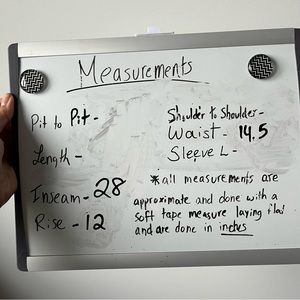 Measurements
Pit to Pit -
Length -
Inseam - 28
Rise - 12
Shoulder to Shoulder -
Waist - 14.5
Sleeve L -
*all measurements are
approximate and done with a
soft tape measure laying flat
and are done in inches